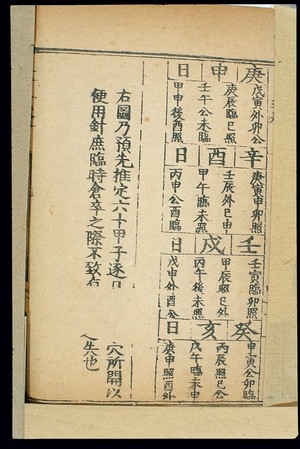 庚申日
戊寅外卯公
庚辰臨巳照
壬午公未臨
甲申後酉照
辛酉日
庚寅申卯照
壬辰外巳申
甲午臨未照
丙申公酉臨
壬戌日
壬寅臨卯照
甲辰照巳外
丙午後未照
戊申外酉公
癸亥日
甲寅公卯臨
丙辰照巳公
戊午臨未申
庚申照酉外
右圖乃預先推定六十甲子逐日穴所開以
便用針庶臨時倉卒之際不致失也